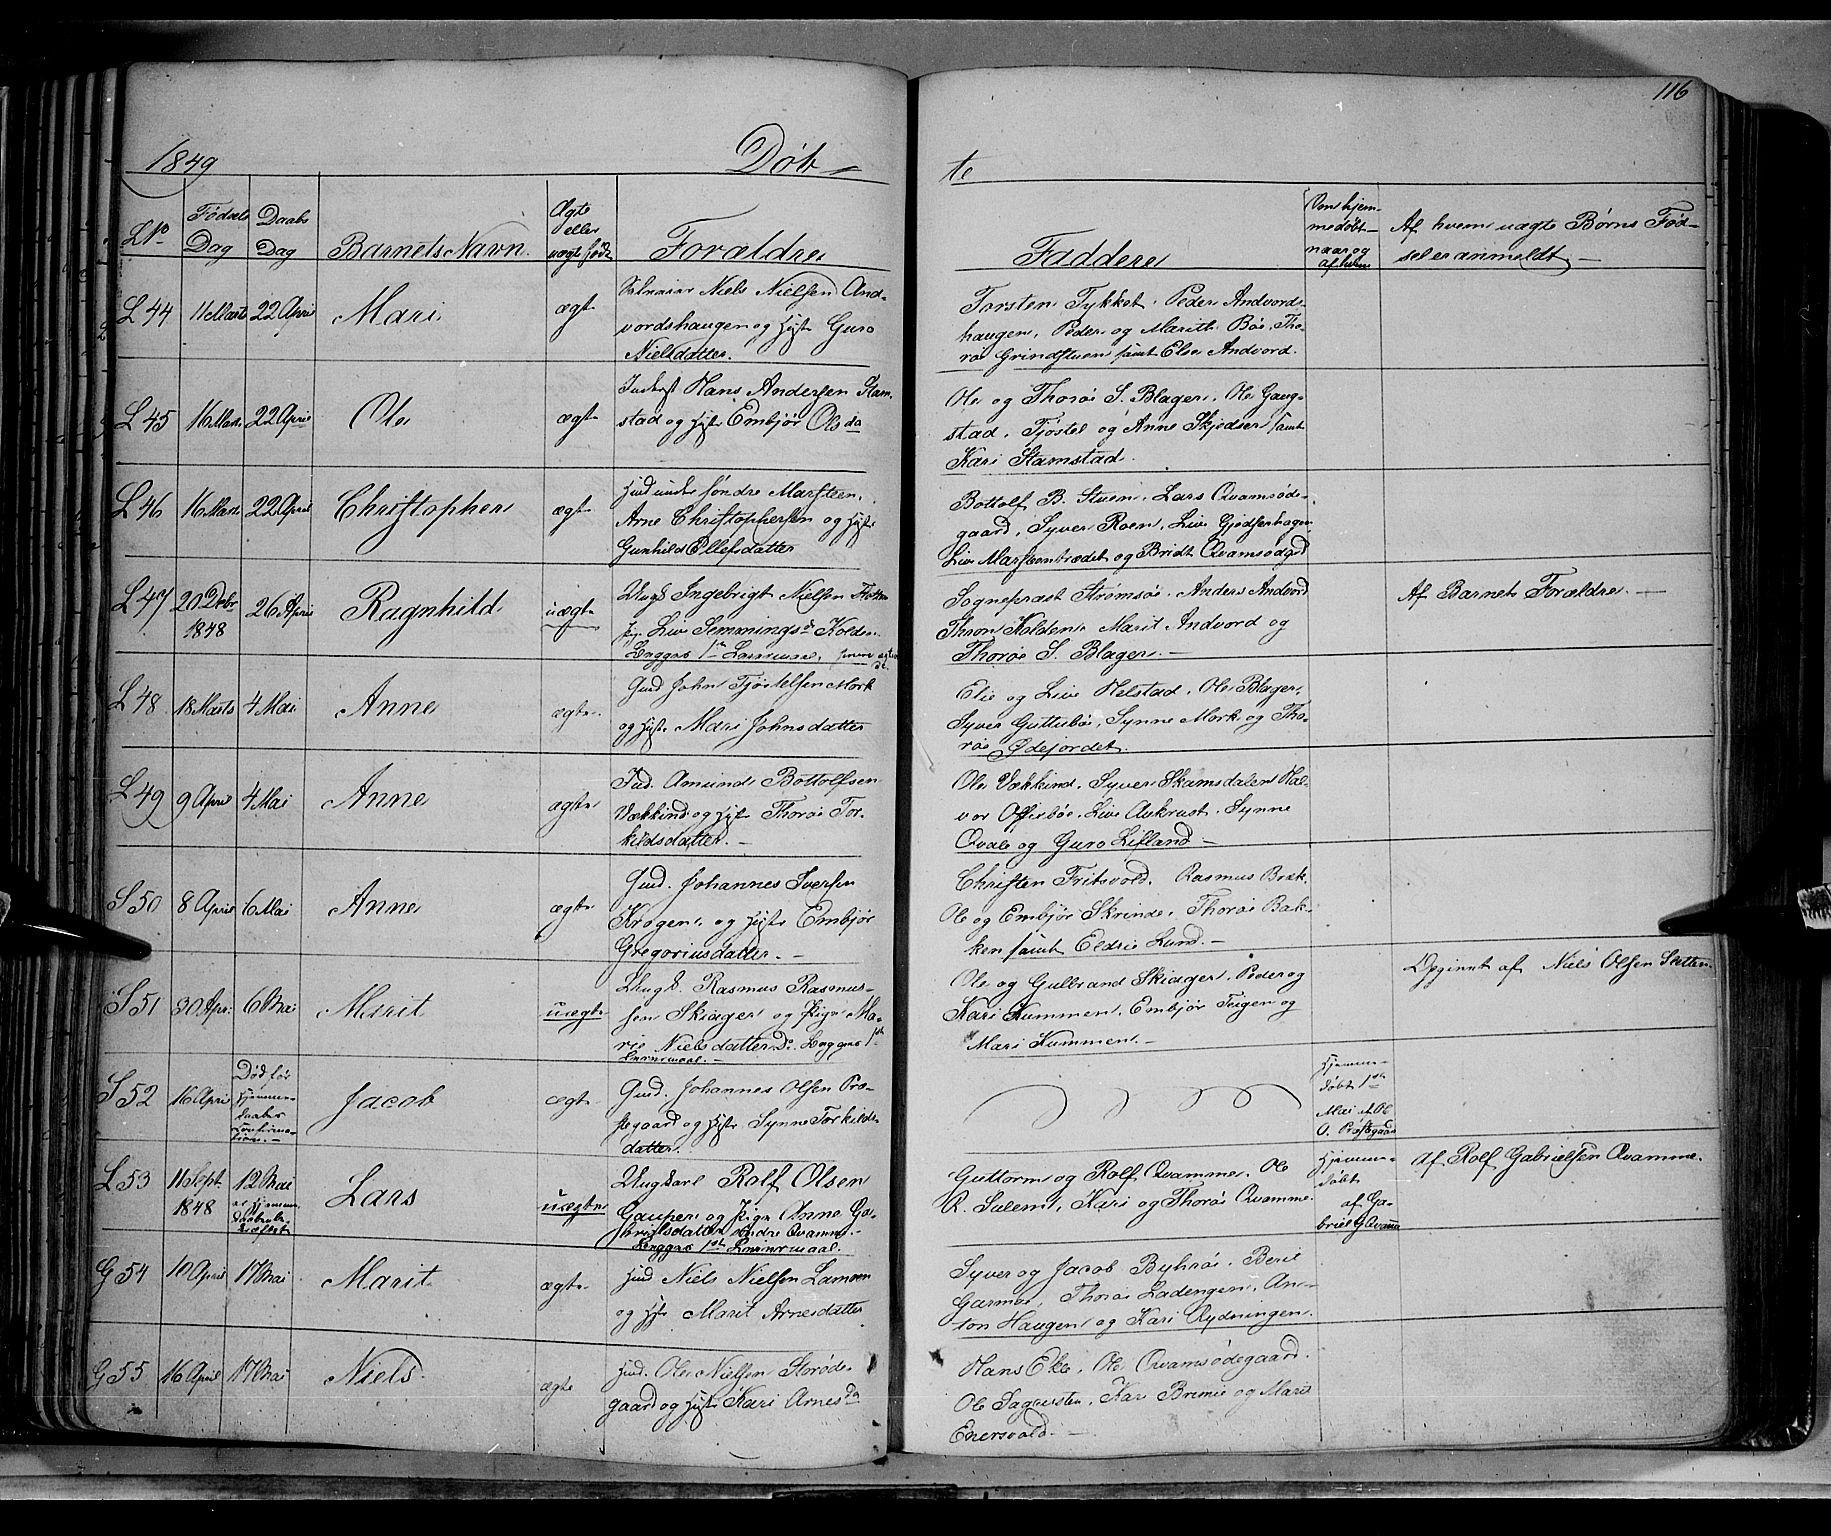 116
1849
Døb
te
L No
Fødsels Dag
Daabs Dag
Barnets Navn
Ægte eller uægte født
Forældre
Faddere
Om hjemmedøbt naar og af hvem
Af hvem uægte Børns Fødsel er anmeldt
L 44 11 Marts 22 April Mari ægte
Niels Nielsen And-
vordshaugen og Hust Guro
Nielsdatter.
Torsten Tykket. Peder Andvords-
haugen, Peder og Marith Bøe, Tho-
rø Grindstuen samt Else Andvord.
L 45 16 Marts 22 April Ole ægte
Inderst Hans Andersen Stam-
stad og Hust Embjør Olsda
Ole og Thorø S. Blager, Ole Gaug-
stad, Tjøstel og Anne Skjedser samt
Kari Stamstad.
L 46 16 Marts 22 April Christopher ægte
Huusm under søndre Marsteen,
Arne Christophersen og Hust
Gunhild Ellefsdatter
Bottolf B. Stuen, Lars Qvamsøde-
gaard, Syver Roen, Live Gjedsenhagen
Live Marsteentrædet og Bridt Qvamsødgd
L 47 20 Debr 1848 26 April Ragnhild uægte
Ungk Ingebrigt Nielsen
pige Live Semmingsd Kolden
Begges 1ste Leiermaal,
Sogneprest Strømsøe. Anders Andvord
Thron Kolden Marit Andvord og
Thorø S. Blager.
Af Barnets Forældre.
L 48 18 Marts 4 Mai Anne ægte
Gmd John Tjøstelsen Mork
og Hust Mari Johnsdatter
Elie og Live Helstad. Ole Blager,
Syver Guttubøe, Synne Mork og Tho-
rø Ødejordet.
L 49 9 April 4 Mai Anne ægte
Ind. Amund Bottolfsen
Vækkind og Hust Thorø Tor-
kildsdatter.
Ole Vækkind, Syver Skamsdalen Hal-
vor Offerbøe, Live Aukrust, Synne
Qvale og Guro Lifland.
S 50 8 April 6 Mai Anne ægte
Gmd. Johannes Iversen
Krogen, og Hust Embjør
Gregoriusdatter.
Christen Fritsvold. Rasmus Bræk,
Ole og Embjør Skrinde, Thorø Bak-
ken samt Eldrie Lund.
S 51 30 Apr. 6 Mai Marit uægte
Ungk. Rasmus Rasmus-
sen Skiager og Pige Ma-
rie Nielsdatter Do. Begges 1ste
Leiermaal.
Ole og Gulbrand Skiager, Peder og
Kari Kummen, Embjør Teigen og
Mari Kummen.
Opgivet af Niels Olsen Sletten
S 52 16 April
Død før
Hjemme-
daabens
Confirma-
tion.
Jacob ægte
Gmd. Johannes Olsen Præ-
stegaard og Hust Synne Torkilds-
datter.
Hjemme-
døbt 1ste
Mai af Ol
O. Præstgaar
L 53 11 Sept 1848 12 Mai
Lars uægte
Ungkarl Rolf Olsen
Gaupen og Pige Anne Ga-
brielsdatter Nordre Qvamme.
Begges 1ste Leiermaal.
Guttorm og Rolf Qvamme. Ole
R. Sulem, Kari og Thorø Qvamme
Hjemme-
døbt
af Ga-
briel G Qvamme
af Rolf Gabrielsen Qvamme.
G 54 10 April 17 Mai Marit ægte
Huusm Niels Nielsen Lamoen
og Hust Marit Arnesdatter
Syver og Jacob Byhrøe. Berit
Garmoe, Thorø Ladengen, An-
ton Haugen og Kari Rydningen.
G 55 16 April 17 Mai Niels ægte
Huusm. Ole Nielsen Storøde-
gaard og Hust Kari Arnesda
Hans Eke, Ole Qvamsødegaard.
Ole Sagersten, Kari Brimie og Marit
Enersvold.